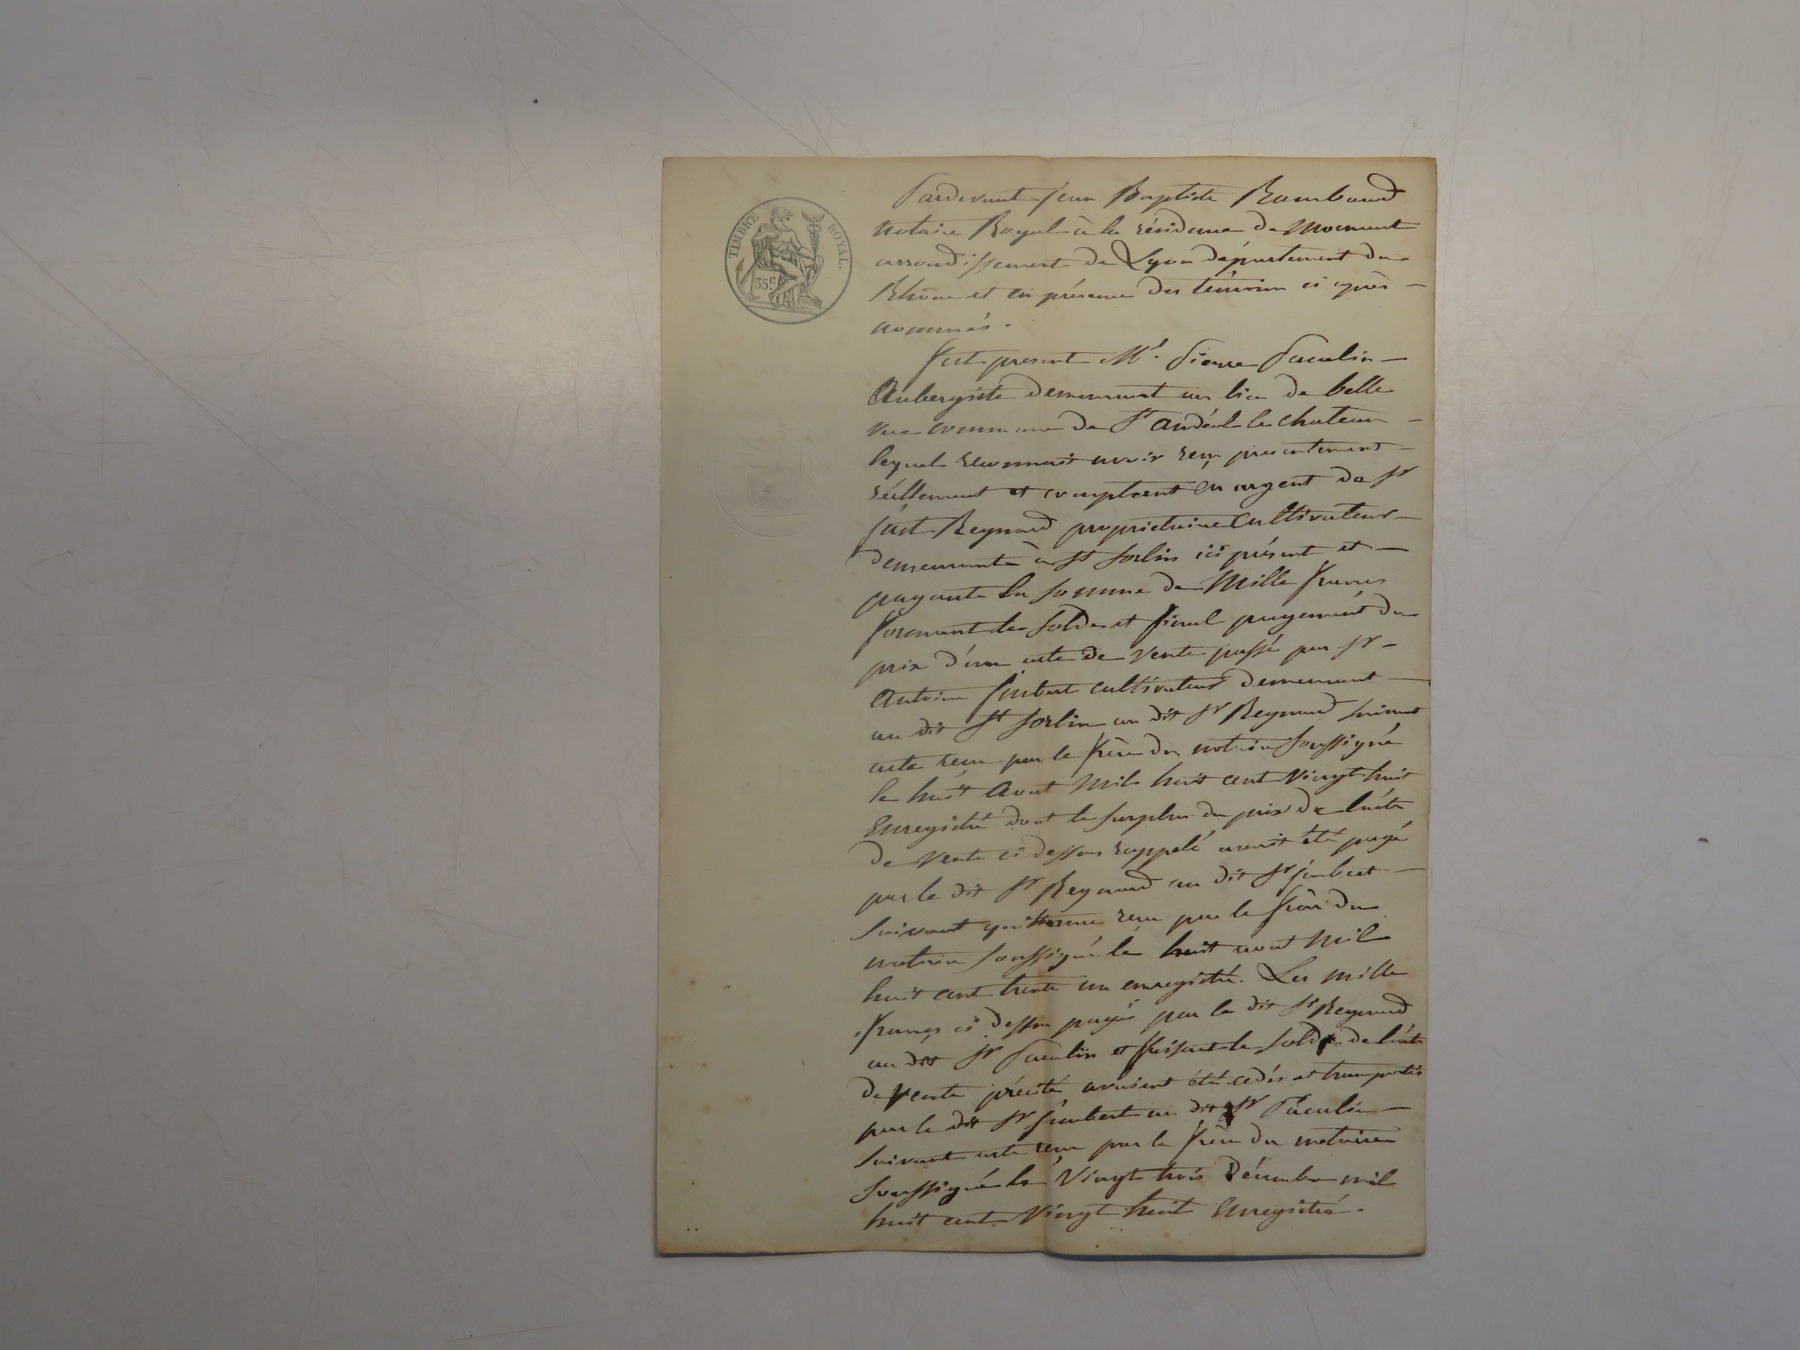 TIMBRE ROYAL.
35c.
Pardevant jean Baptiste Rambaud
notaire Royal à la résidence de Mornant
arrondissement de Lyon département du
Rhône et en présence des témoins ci après
nommés.
fut present Mr. Pierre Paculin
Aubergiste demeurant au lieu de belle
vue commune de St andéol le chateau
lequel reconnait avoir reçu presentement
réellement et comptent en argent de Sr
just Reynard proprietaire Cultivateur
demeurante à St Sorlin ici présent et
payante la somme de Mille francs
formant le solde et final payement du
prix d'un acte de vente passé par Sr
Antoine Jimbert cultivateur demeurant
au dit St Sorlin au dit Sr Reynard suivant
acte reçu par le frère du notaire soussigné
le huit Aout Mil huit cent vingt huit
Enregistré dont le surplus du prix de l'acte
de vente ci dessus rappelé avait été payé
par le dit Sr Reynard au dit Sr jimbert
suivant quittance reçu par le frère du
notaire soussigné le huit aout Mil
huit cent trente un enregistré. Les mille
francs ci dessus payés par le dit Sr Reynard
au dit Sr Paculin et faisant le solde de l'acte
de vente précité avaient été cédés et transportés
par le dit Sr Jimbert au dit Sr Paculin
suivant acte reçu par le frère du notaire
soussigné le Vingt trois Décembre mil
huit cent Vingt huit Enregistré.